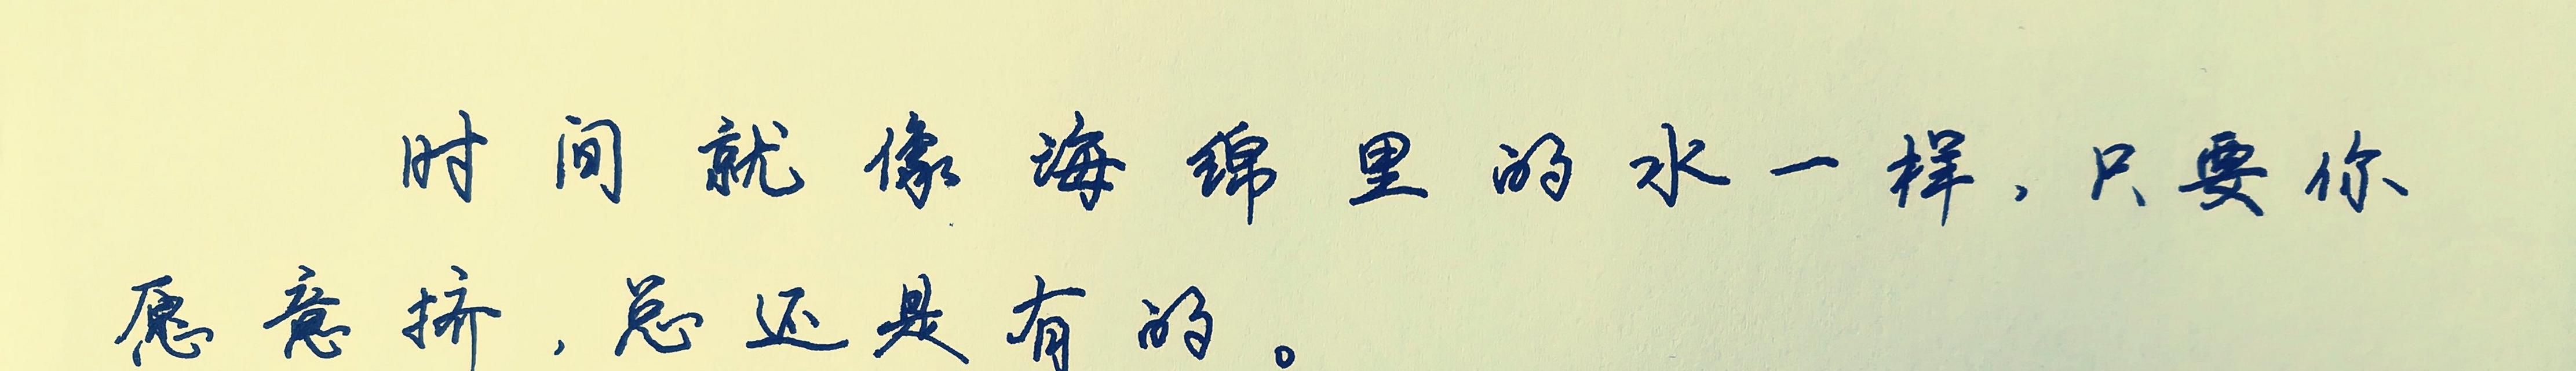 时间就像海绵里的水一样,只要你
愿意挤,总还是有的。